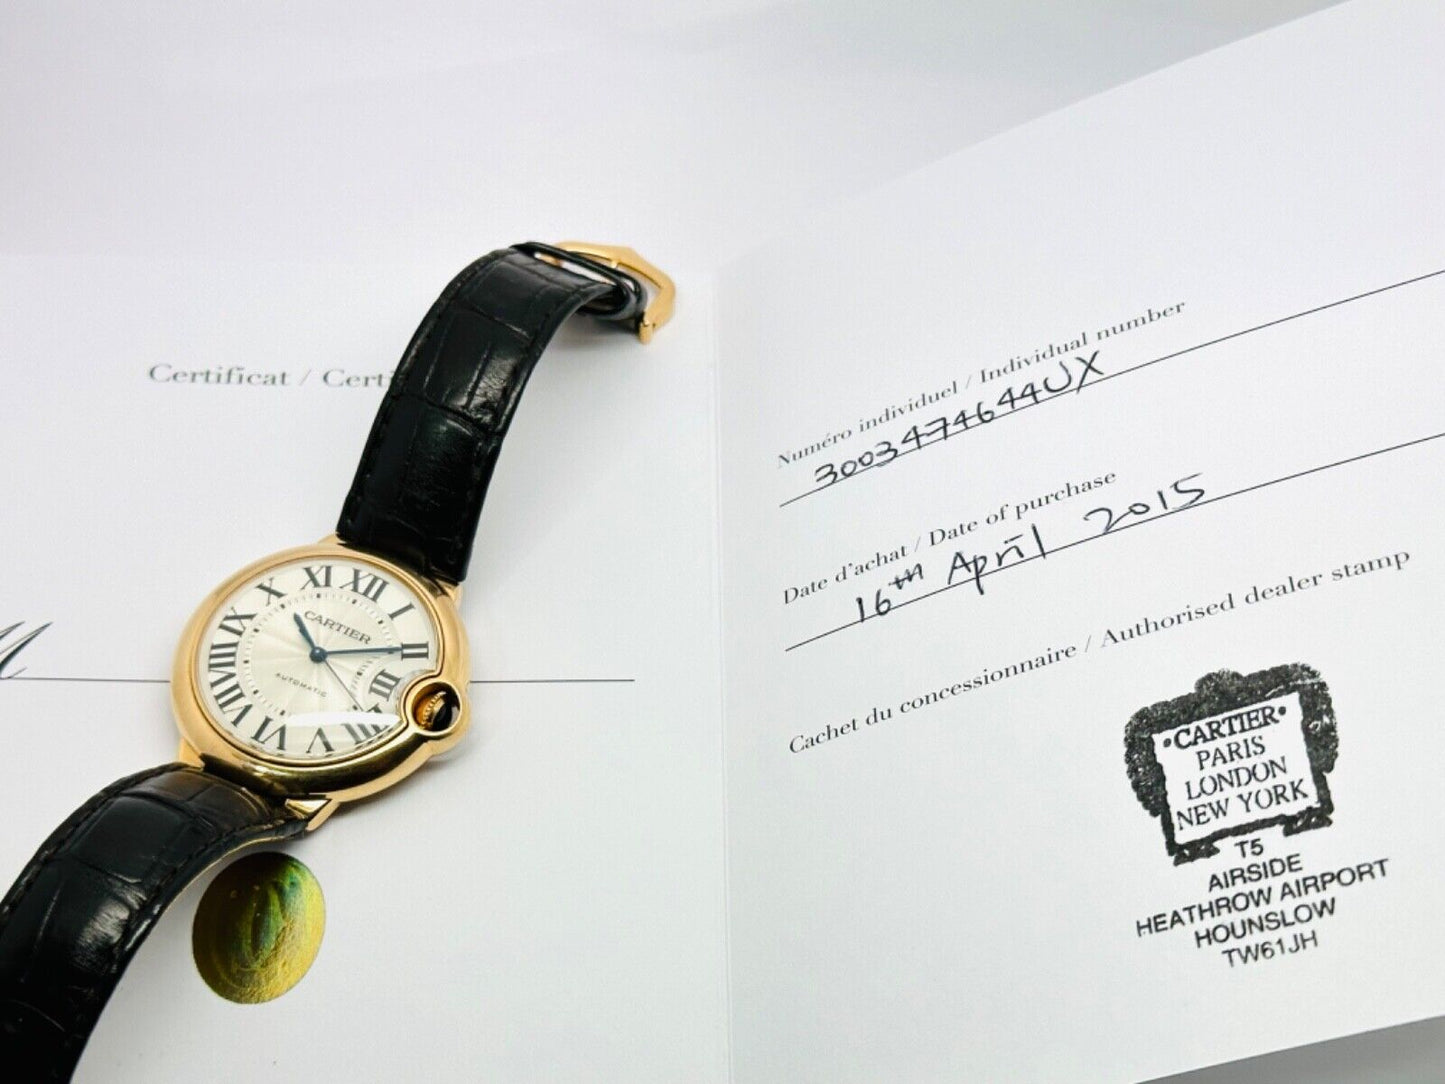 Certificat / Certi
XI XII I II III IIII V VI VII VIII IX X
CARTIER
AUTOMATIC
Numéro individuel / Individual number
3003474644UX
Date d'achat / Date of purchase
16th April 2015
Cachet du concessionnaire / Authorised dealer stamp
•CARTIER•
PARIS
LONDON
NEW YORK
T5
AIRSIDE
HEATHROW AIRPORT
HOUNSLOW
TW61JH